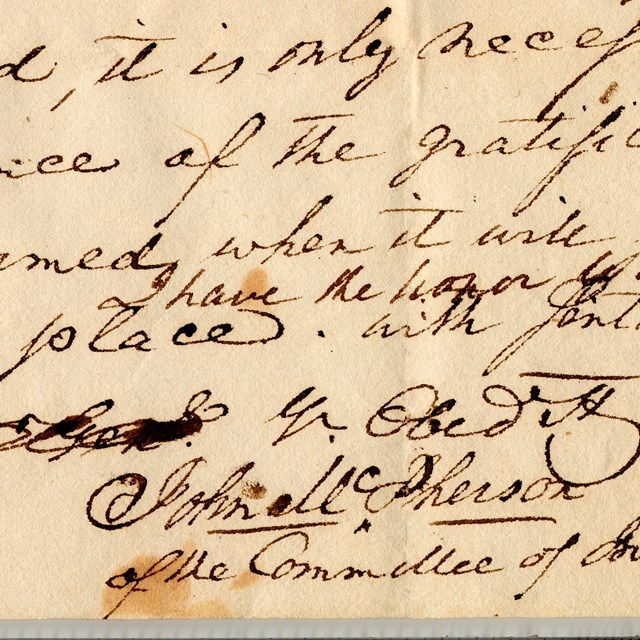 d, it is only necess
nce of the gratific
amed, when it will
I have the honor
place. with
Yr. Obed. St
John McPherson
of the Committee of